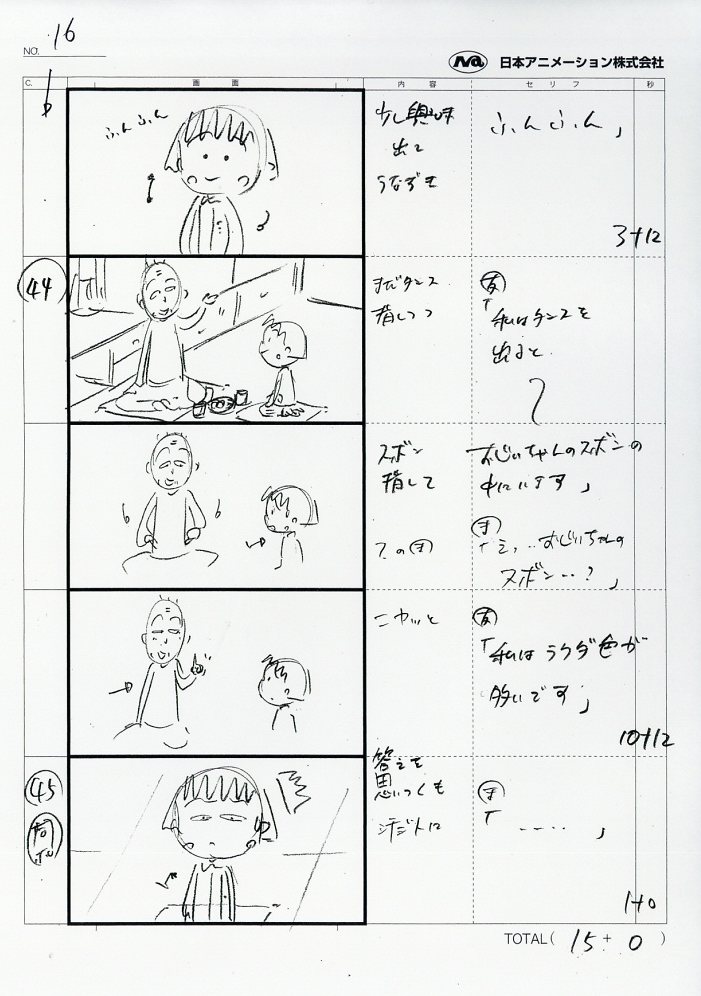 NO. 16
Na 日本アニメーション株式会社
C. 画面 内容 セリフ 秒
ふんふん
少し興味
出て
うなずき
ふんふん」
3+12
44
まだタンス
指しつつ
友
「私はタンスを
出ると
ズボン
指して
おじいちゃんのズボンの
中にいます」
?のま
ま
「えっ…おじいちゃんの
ズボン‥?」
ニヤッと
友
「私はラクダ色が
多いです」
10+12
45
同ポ
答えを
思いつくも
ま
「‥‥」
1+0
TOTAL( 15 + 0 )